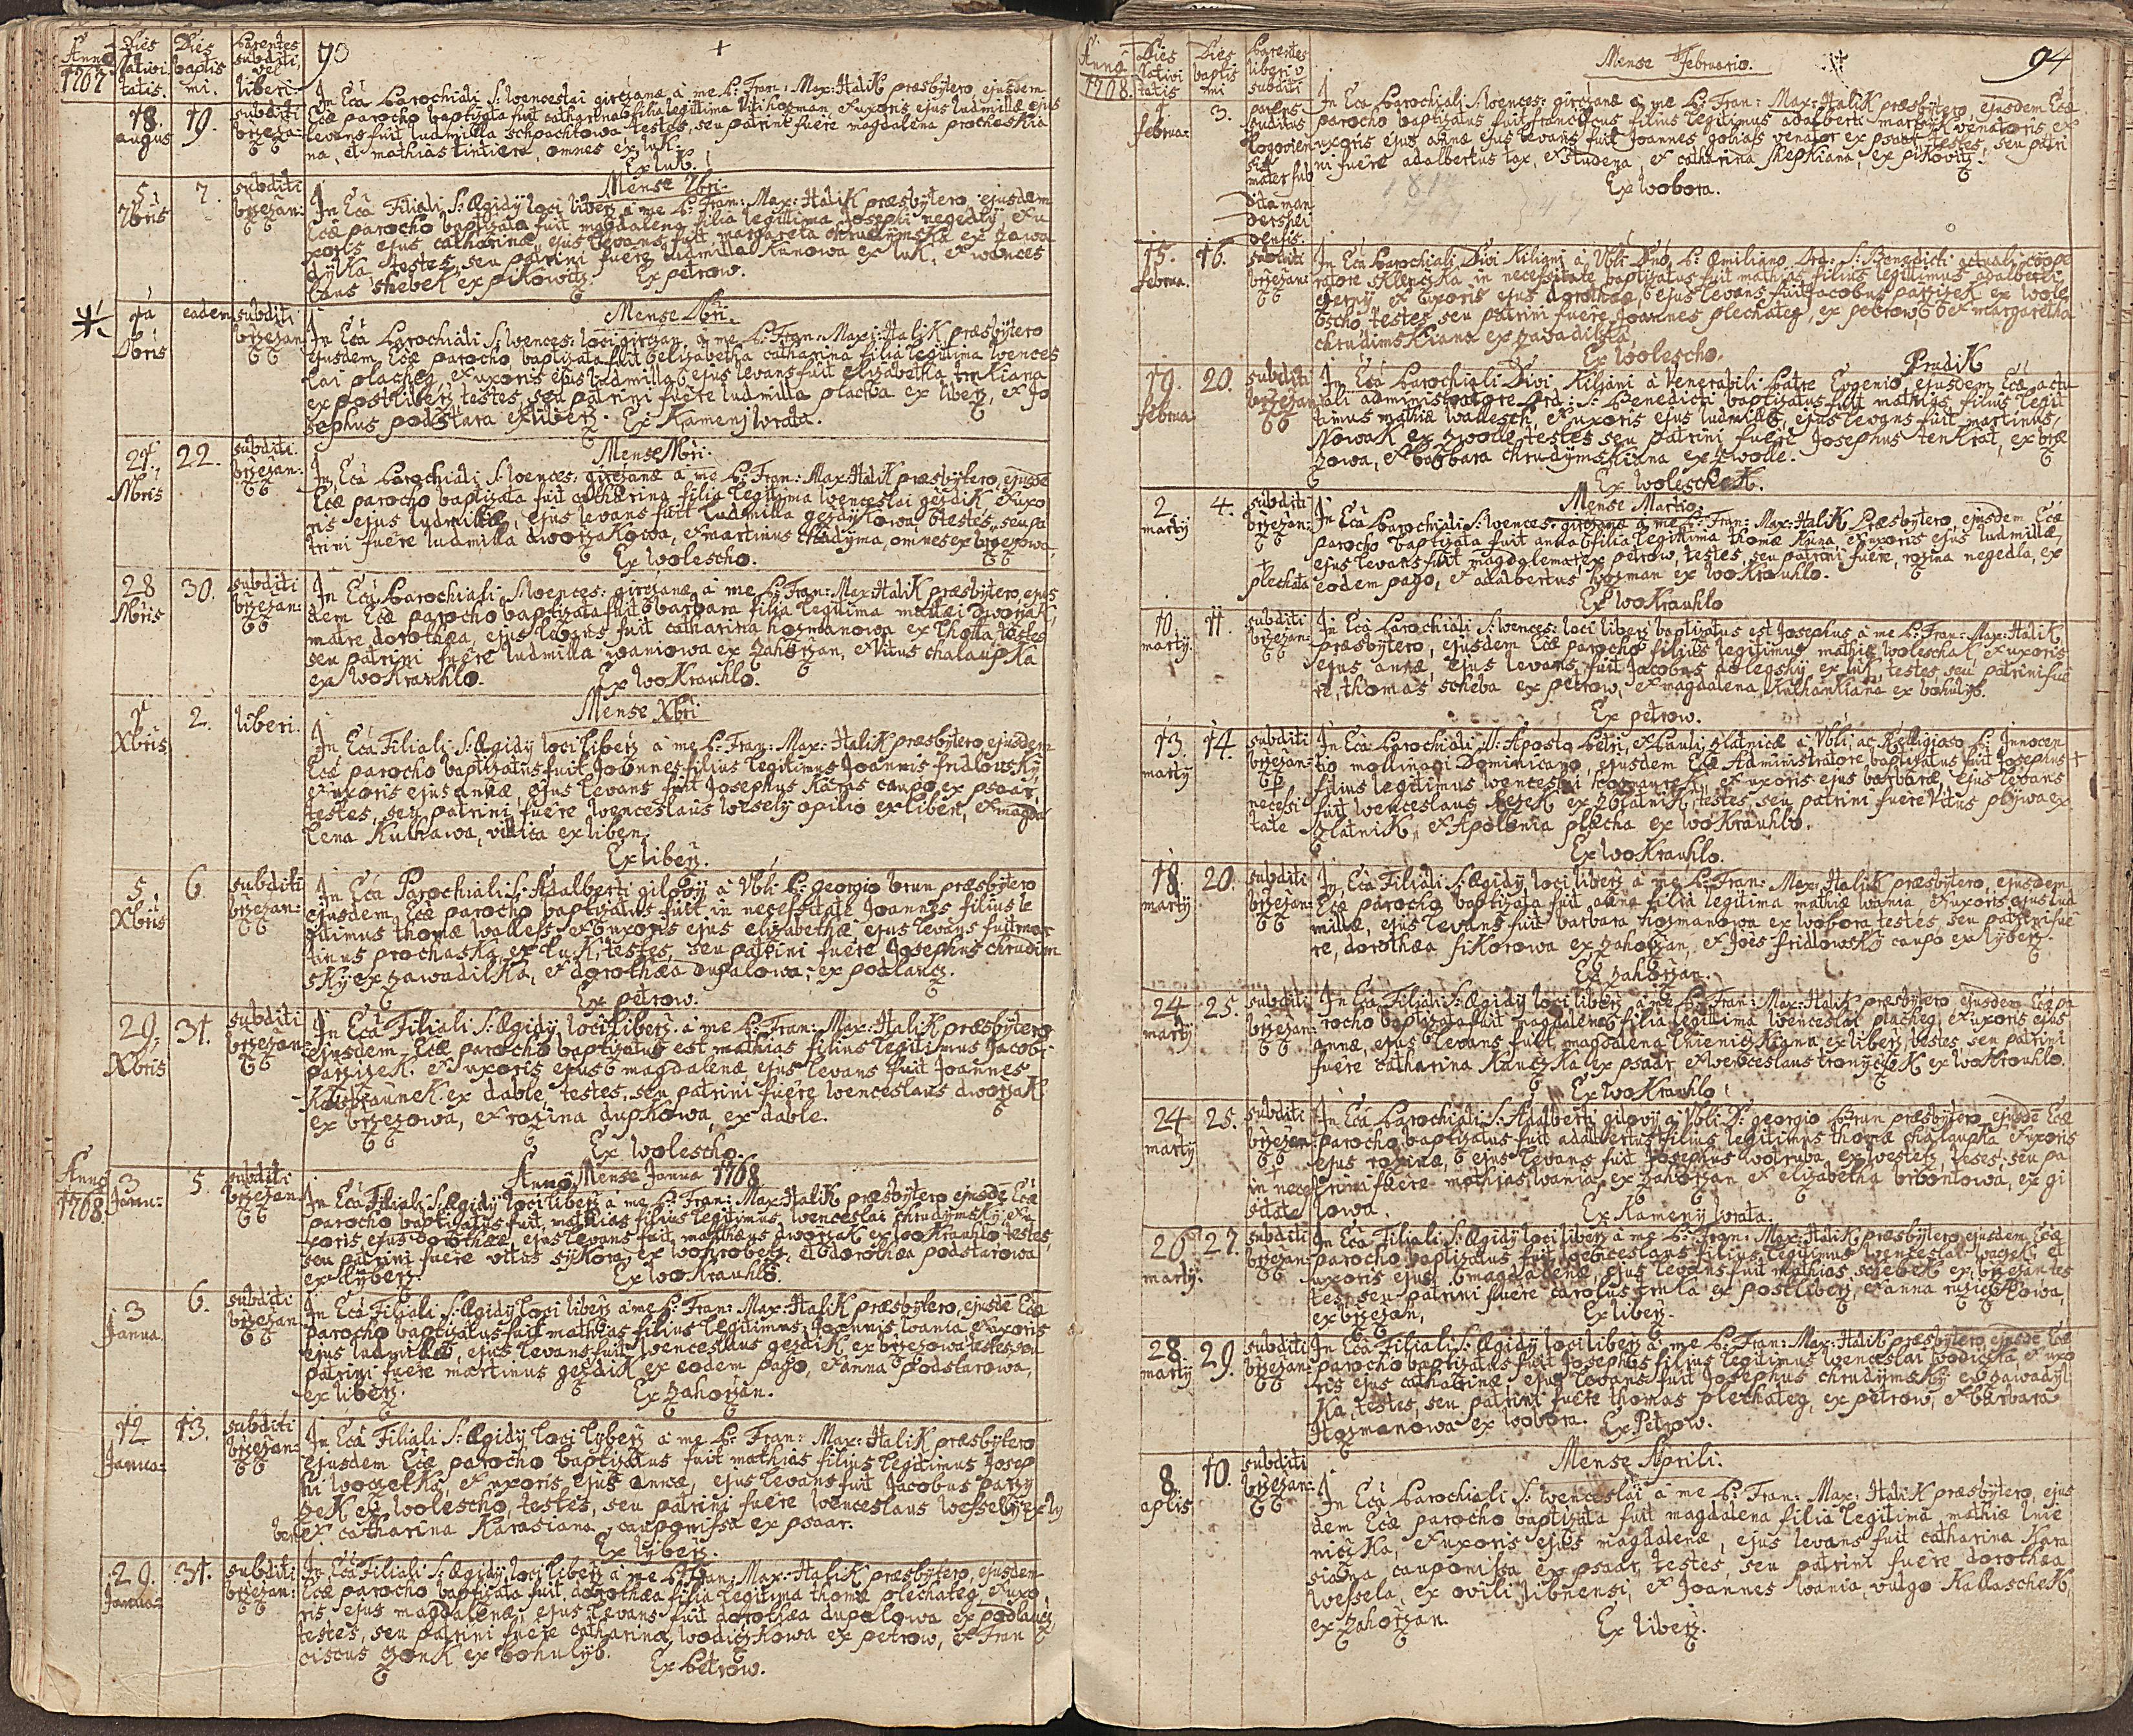 Anno 1767
Dies Nativitatis.
Dies baptismi.
Parentes subditi, vel liberi.
90
18. augus
19.
subditi brzezan:
In Ecâ Parochiali S: Wenceslai girczanæ à me P: Fran: Max: Halik præsbytero, ejusdem
Ecæ parocho baptizata fuit catharina filia legittima Viti hozman, et uxoris ejus ludmillæ, ejus
levans fuit ludmilla schpachtowa testes, seu patrini fuêre magdalena prochaskia
na, et mathias tintiera, omnes ex luk.
Ex luk.
Mense 7bri.
5 7bris
7.
subditi brzezan:
In Ecâ Filiali S: Ægidÿ loci liberz à me P: Fran: Max: Halik præsbytero, ejusdem
Ecæ parocho baptizata fuit magdalena filia legittima Josephi negedlÿ et u
xoris ejus catharinæ, ejus levans fuit margareta chrudimska ex zawa
dylka testes, seu patrini fuêre ludmilla kunowa ex luk, et wences
laus shebek ex pikowitz. Ex petrow.
Mense 8bri.
eadem
subditi brzezan
In Ecâ Parochiali S: Wences: loci girczan, à me P: Fran: Max: Halik præsbytero
ejusdem Ecæ parocho, baptizata fuit elizabetha catharina filia legitima wences
lai placheg, et uxoris ejus ludmilla ejus levans fuit elizabetha trnkiana
ex postliberz testes, seu patrini fuêre ludmilla plachta ex liberz, et Jo
sephus podstara ex liberz. Ex Kamenj wrata.
Mense 9bri.
21. 9bris
22.
subditi. brzezan:
In Ecâ Parochiali S: Wences: girczanæ à me P: Fran: Max: Halik præsbytero, ejusdê
Ecæ parocho baptizata fuit catharina filia legitima wenceslai gezdik et uxo
ris ejus ludmillæ, ejus levans fuit ludmilla gezdykowa, testes, seu pa
trini fuêre ludmilla dworzakowa, et martinus chadyma, omnes ex brzezowa.
Ex wolescho.
28 9bris
30.
subditi brzezan:
In Ecâ Parochiali S: Wences: girczanæ à me P: Fran: Max: Halik præsbytero, ejus
dem Ecæ parocho baptizata fuit barbara filia legitima mathæi dworzak,
matre dorothæa, ejus levans fuit catharina hozmanowa ex lhotta testes
seu patrini fuêre ludmilla waniowa ex zahorzan, et Vitus chalaupka
ex wokrauhlo. Ex wokrauhlo.
Mense Xbri
1 Xbris
2.
liberi.
In Ecâ Filiali S: Ægidÿ loci liberz à me P: Fran: Max: Halik præsbytero ejusdem
Ecæ parocho baptizatus fuit Joannes filius legitimus Joannis fridlowskÿ,
et uxoris ejus annæ, ejus levans fuit Josephus karas caupo ex psaar,
testes, seu patrini fuêre wenceslaus wesely opilio ex liberz, et magda
lena kulhawa, villica ex liben.
Ex liberz.
5 Xbris
6.
subditi brzezan:
In Ecâ Parochiali S: Adalberti gilowÿ à Vbli P: georgio brun præsbytero
ejusdem Ecæ parocho baptizatus fuit in necessitate Joannes filius le
gitimus thomæ walless, et uxoris ejus elizabethæ ejus levans fuit mar
tinus prochaska, ex luk, testes, seu patrini fuêre Josephus chrudim
skÿ ex zawadilka, et dorothæa dupalowa, ex podlaucz.
Ex petrow.
29. Xbris
31.
subditi brzezan:
In Ecâ Filiali S: Ægidÿ loci liberz. à me P: Fran: Max: Halik præsbytero
ejusdem Ecæ parocho baptizatus est mathias filius legitimus Jacobi
parzizek. et uxoris ejus magdalenæ ejus levans fuit Joannes
ex dable, testes, seu patrini fuêre wenceslaus dworzak
ex brzezowa, et rozina dupkowa, ex dable.
Ex wolescho.
Anno 1768.
Anno, Mense Janua 1768
3 Janu:
5.
subditi brzezan
In Ecâ Filiali S: Ægidÿ loci liberz à me P: Fran: Max: Halik præsbytero ejusdê Ecæ
parocho baptizatus fuit, mathias filius legitimus wenceslai chrudymskÿ, et u
xoris ejus dorothæe, ejus levans fuit, mathæus dworzak ex wokrauhlo testes,
seu patrini fuêre vitus sykora, ex wohrobetz, et dorothæa podstarowa
ex lyberz. Ex wokrauhlo.
3 Janua
6.
subditi brzezan
In Ecâ Filiali S: Ægidÿ loci liberz à me P: Fran: Max: Halik præsbytero, ejusdê Ecæ
parocho baptizatus fuit mathias filius legitimus, Joannis wania, et uxoris
ejus ludmillæ, ejus levans fuit wenceslaus gezdik ex brzezowa testes, seu
patrini fuêre martinus gezdik, ex eodem pago, et anna podstarowa,
ex liberz. Ex zahorzan.
12 Janua:
13.
subditi brzezan:
In Ecâ Filiali S: Ægidÿ, loci lyberz à me P: Fran: Max: Halik præsbytero
ejusdem Ecæ parocho baptizatus fuit mathias filius legitimus Josep
hi woczetka, et uxoris ejus annæ, ejus levans fuit Jacobus parzy
zek ex wolescho, testes, seu patrini fuêre wenceslaus wessely ex ly
ben et catharina karasiana, cauponissa ex psaar.
Ex lyberz.
29. Janua:
31.
subditi brzezan:
In Ecâ Filiali S: Ægidÿ, loci liberz à me P: Fran: Max: Halik præsbytero, ejusdem
Ecæ parocho baptizata fuit, dorothæa filia legitima thomæ plechateg, et uxo
ris ejus magdalenæ, ejus levans fuit dorothæa dupalowa ex podlaucz
testes, seu patrini fuêre catharina wodiczkowa ex petrow, et Fran
ciscus zonk ex bohulyb. Ex Petrow.
Anno 1768.
Dies Nativitatis
Dies baptismi
Parentes liberi v subditi
Mense Februario.
94
1 februa:
3.
mater subdita mandersheidensis.
In Ecâ Parochiali S: Wences: girczanæ à me P: Fran: Max: Halik præsbytero, ejusdem Ecæ
parocho baptizatus fuit franciscus filius legitimus adalberti venatoris et
uxoris ejus annæ ejus levans fuit Joannes gobias venator ex psaar, testes, seu patri
ni fuêre adalbertus lax, ex studena, et catharina shepkiana, ex pikovitz.
Ex wobora.
15. februa.
16.
subditi brzezan:
In Ecâ Parochiali Divi Kiliani à Vbli Dno P: Æmiliano Ord: S: Benedicti actuali coope
ratore in necessitate baptizatus fuit mathias filius legittimus adalberti
czerny, et uxoris ejus dorothææ, ejus levans fuit Jacobus parzizek ex wole
scho, testes, seu patrini fuêre Joannes plechateg, ex petrow, et margaretha
chrudimskiana ex zavadilka,
Ex wolescho.
19. februa
20.
subditi brzezan
Prudik
In Ecâ Parochiali Divi Kiliani à Venerabili Patre Evgenio, ejusdem Ecæ actu
ali administratore Ord: S: Benedicti baptizatus fuit mathias filius legit
timus mathiæ wallesch, et uxoris ejus ludmillæ, ejus levans fuit martinus,
Nowak ex zwolle, testes seu patrini fuêre Josephus tenkrat, ex brze
zowa, et barbara chrudymskiana ex zwolle.
Ex woleschek.
Mense Martio:
2 martÿ
4.
subditi brzezan:
plechata
In Ecâ Parochiali S: Wences: girczanæ à me P: Fran: Max: Halik Præsbytero, ejusdem Ecæ
parocho baptizata fuit anna filia legittima thomæ kuna, et uxoris ejus ludmillæ,
ejus levans fuit magdalena ex petrow, testes, seu patrini fuêre, rozina negedla, ex
eodem pago, et adalbertus hozman ex wokrauhlo.
Ex wokrauhlo
10. martÿ.
11.
subditi brzezan:
In Ecâ Parochiali S: Wences: loci liberz baptizatus est Josephus à me P: Fran: Max: Halik
præsbytero, ejusdem Ecæ parocho filius legitimus mathiæ woleschak et uxoris
ejus annæ, ejus levans fuit Jacobus dolegshÿ ex luk, testes, seu patrini fuê
re, thomas scheba ex petrow, et magdalena ex bohulib.
Ex petrow.
13. martÿ
14.
subditi brzezan: necessitate
In Ecâ Parochiali SS: Aposto Petri, et Pauli, zlatnicæ à Vbli, ac Religioso P: Innocen
tio mollinari Dominicano, ejusdem Ecæ Administratore, baptizatus fuit Josephus
filius legitimus wenceslai et uxoris ejus barbaræ, ejus levans
fuit wenceslaus ex zlatnik, testes, seu patrini fuêre Vitus plywa ex
zlatnik, et Apolonia plecha ex wokrauhlo.
Ex wokrauhlo.
18 martÿ
20.
subditi brzezan:
In Ecâ Filiali S: Ægidÿ loci liberz à me P: Fran: Max: Halik præsbytero, ejusdem
Ecæ parocho baptizata fuit anna filia legitima mathiæ wania et uxoris ejus lud
millæ, ejus levans fuit barbara hozmanowa ex wobora testes, seu patrini fuê
re, dorothæa sikorowa ex zahorzan, et Joês fridlowskÿ caupo ex lyberz.
Ex zahorzan.
24 martÿ
25.
subditi brzezan:
In Ecâ Filiali S: Ægidÿ, loci liberz à me P: Fran: Max: Halik præsbytero ejusdem Ecæ pa
rocho baptizata fuit magdalena filia legittima wenceslai placheg, et uxoris ejus
annæ, ejus levans fuit, magdalena lnieniczkiana ex liberz, testes, seu patrini
fuêre catharina kunczka ex psaar et wenceslaus tronyczek ex wokrauhlo.
Ex wokrauhlo.
24 martÿ
25.
subditi brzezan: in necessitate
In Ecâ Parochiali S: Adalberti gilowÿ à Vbli P: georgio Brun præsbytero, ejusdê Ecæ
parocho baptizatus fuit adalbertus filius legitimus thomæ chalaupka et uxoris
ejus rozinæ, ejus levans fuit Josephus wotruba, ex westetz, testes, seu pa
trini fuêre mathias wania, ex zahorzan, et elizabetha brbontowa, ex gi
lowa. Ex kamenÿ wrata.
26 martÿ.
27.
subditi brzezan:
In Ecâ Filiali S: Ægidÿ loci liberz à me P: Fran: Max: Halik præsbytero ejusdem Ecæ
parocho baptizatus fuit wenceslaus filius legitimus wenceslai et
uxoris ejus magdalenæ ejus levans fuit mathias schebek ex brzezan tes
tes, seu patrini fuêre carolus trnka ex postliberz, et anna ruziczkowa,
ex brzezan, Ex liberz.
28. martÿ
29.
subditi brzezan
In Ecâ Filiali S: Ægidÿ, loci liberz à me P: Fran: Max: Halik præsbytero, ejusdê Ecæ
parocho baptizatus fuit Josephus filius legitimus wenceslai wodiczka, et uxo
ris ejus catharinæ ejus levans fuit Josephus chrudymskÿ ex zawadyl
ka, testes, seu patrini fuêre thomas plechateg, ex petrow, et barbara
Hozmanowa ex wobora. Ex Petrow.
Mense Aprili.
8. aplis
10.
subditi brzezan:
In Ecâ Parochiali S: Wenceslai à me P: Fran: Max: Halik præsbytero, ejus
dem Ecæ parocho baptizata fuit magdalena filia legitima mathiæ lnie
nicka, et uxoris ejus magdalenæ, ejus levans fuit catharina kara
siana, cauponissa ex psaar, testes, seu patrini fuêre dorothæa
wessela, ex ovili libnensi, et Joannes wania, vulgo kallaschek,
ex zahorzan. Ex liberz.